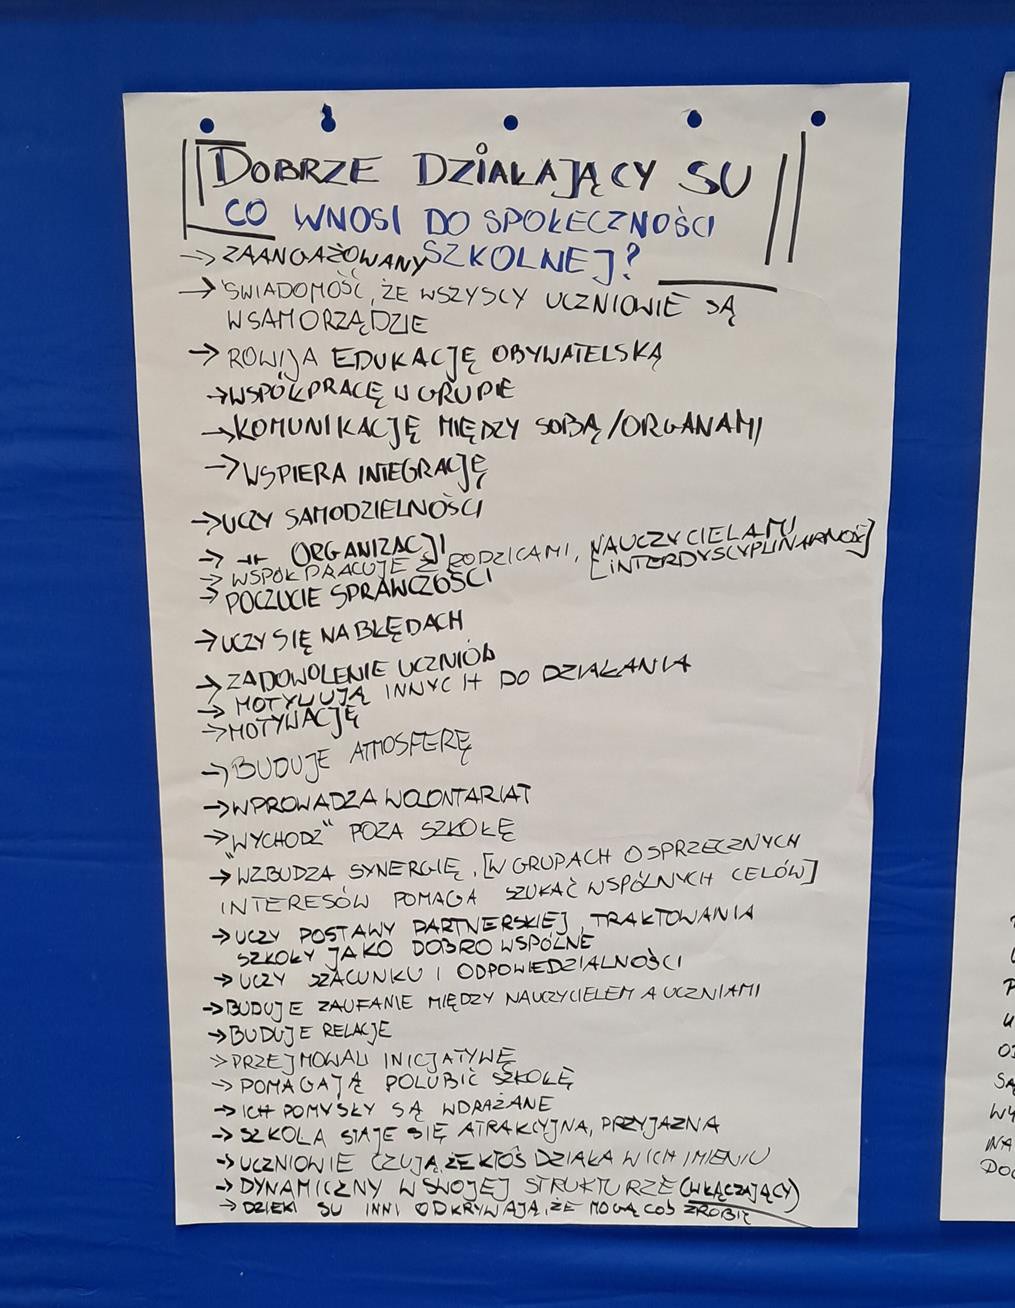 DOBRZE DZIAŁAJĄCY SU
CO WNOSI DO SPOŁECZNOŚCI
SZKOLNEJ?
→ ZAANGAŻOWANY
→ ŚWIADOMOŚĆ, ŻE WSZYSCY UCZNIOWIE SĄ
W SAMORZĄDZIE
→ ROWIJA EDUKACJĘ OBYWATELSKĄ
→ WSPÓŁPRACĘ W GRUPIE
→ KOMUNIKACJĘ MIĘDZY SOBĄ/ORGANAMI
→ WSPIERA INTEGRACJĘ
→ UCZY SAMODZIELNOŚCI
→ -||- ORGANIZACJI
→ WSPÓŁPRACUJE Z RODZICAMI, NAUCZYCIELAMI
[INTERDYSCYPLINARNOŚĆ]
→ POCZUCIE SPRAWCZOŚCI
→ UCZY SIĘ NA BŁĘDACH
→ ZADOWOLENIE UCZNIÓW
→ MOTYWUJĄ INNYCH DO DZIAŁANIA
→ MOTYWACJĘ
→ BUDUJE ATMOSFERĘ
→ WPROWADZA WOLONTARIAT
→ „WYCHODZ" POZA SZKOŁĘ
→ WZBUDZA SYNERGIĘ, [W GRUPACH O SPRZECZNYCH
INTERESÓW POMAGA SZUKAĆ WSPÓLNYCH CELÓW]
→ UCZY POSTAWY PARTNERSKIEJ, TRAKTOWANIA
SZKOŁY JAKO DOBRO WSPÓLNE
→ UCZY SZACUNKU I ODPOWIEDZIALNOŚCI
→ BUDUJE ZAUFANIE MIĘDZY NAUCZYCIELEM A UCZNIAMI
→ BUDUJE RELACJE
→ PRZEJMOWALI INICJATYWĘ
→ POMAGAJĄ POLUBIĆ SZKOŁĘ
→ ICH POMYSŁY SĄ WDRAŻANE
→ SZKOŁA STAJE SIĘ ATRAKCYJNA, PRZYJAZNA
→ UCZNIOWIE CZUJĄ, ŻE KTOŚ DZIAŁA W ICH IMIENIU
→ DYNAMICZNY W SWOJEJ STRUKTURZE (WŁĄCZAJĄCY)
→ DZIEKI SU INNI ODKRYWAJĄ, ŻE MOGĄ COŚ ZROBIĆ